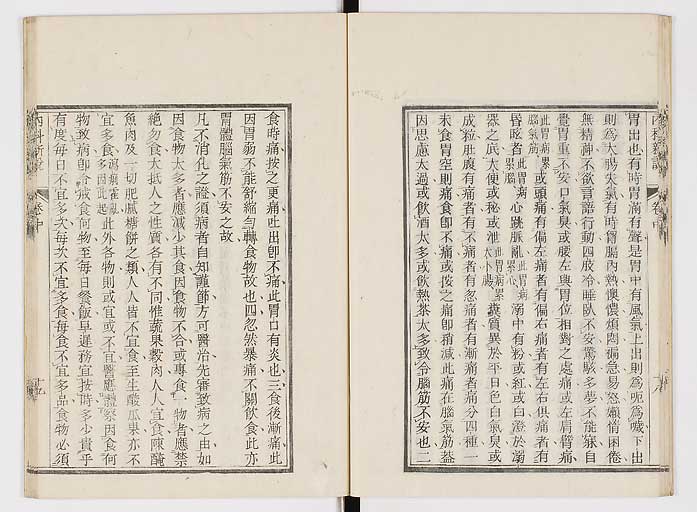 胃出也有時胃滿有聲是胃中有風氣上出則為呃為噦下出
則為大腸失氣有時胃膈內熱懊憹煩悶褊急易怒嬾惰困倦
無精神不欲言語行動四肢冷睡臥不安驚駭多夢不能寐自
覺胃重不安口氣臭或腰左與胃位相對之處痛或左肩臂痛
此胃病累腦氣筋或頭痛有偏左痛者有偏右痛者有左右俱痛者有
昏眩者此胃病累腦心跳脈亂此胃病累心溺中有粉或紅或白澄於溺
器之底大便或秘或泄此胃病累大小腸糞質異於平日色白氣臭或
成粒肚腹有痛者有不痛者有忽痛者有漸痛者痛分四種一
未食胃空則痛食卽不痛或按之痛卽稍減此痛在腦氣筋蓋
因思慮太過或飲酒太多或飲熱茶太多致令腦筋不安也二
食時痛按之更痛吐出卽不痛此胃口有炎也三食後漸痛此
因胃弱不能舒縮勻轉食物故也四忽然暴痛不關飲食此亦
胃體腦氣筋不安之故
凡不消化之證須病者自知謹節方可醫治先審致病之由如
因食物太多者應減少其食因食物不合或專食一物者應禁
絕勿食大抵人之性質各有不同惟蔬果穀肉人人宜食陳醃
魚肉及一切肥膩糖餅之類人人皆不宜食至生酸瓜果亦不
宜多食瀉痢霍亂多因此起此外各物則或宜或不宜醫應體察因食何
物致病卽令戒食何物至每日餐飯早遲務宜按時多少貴乎
有度每日不宜多次每次不宜多食每食不宜多品食物必須
內科新說
卷中